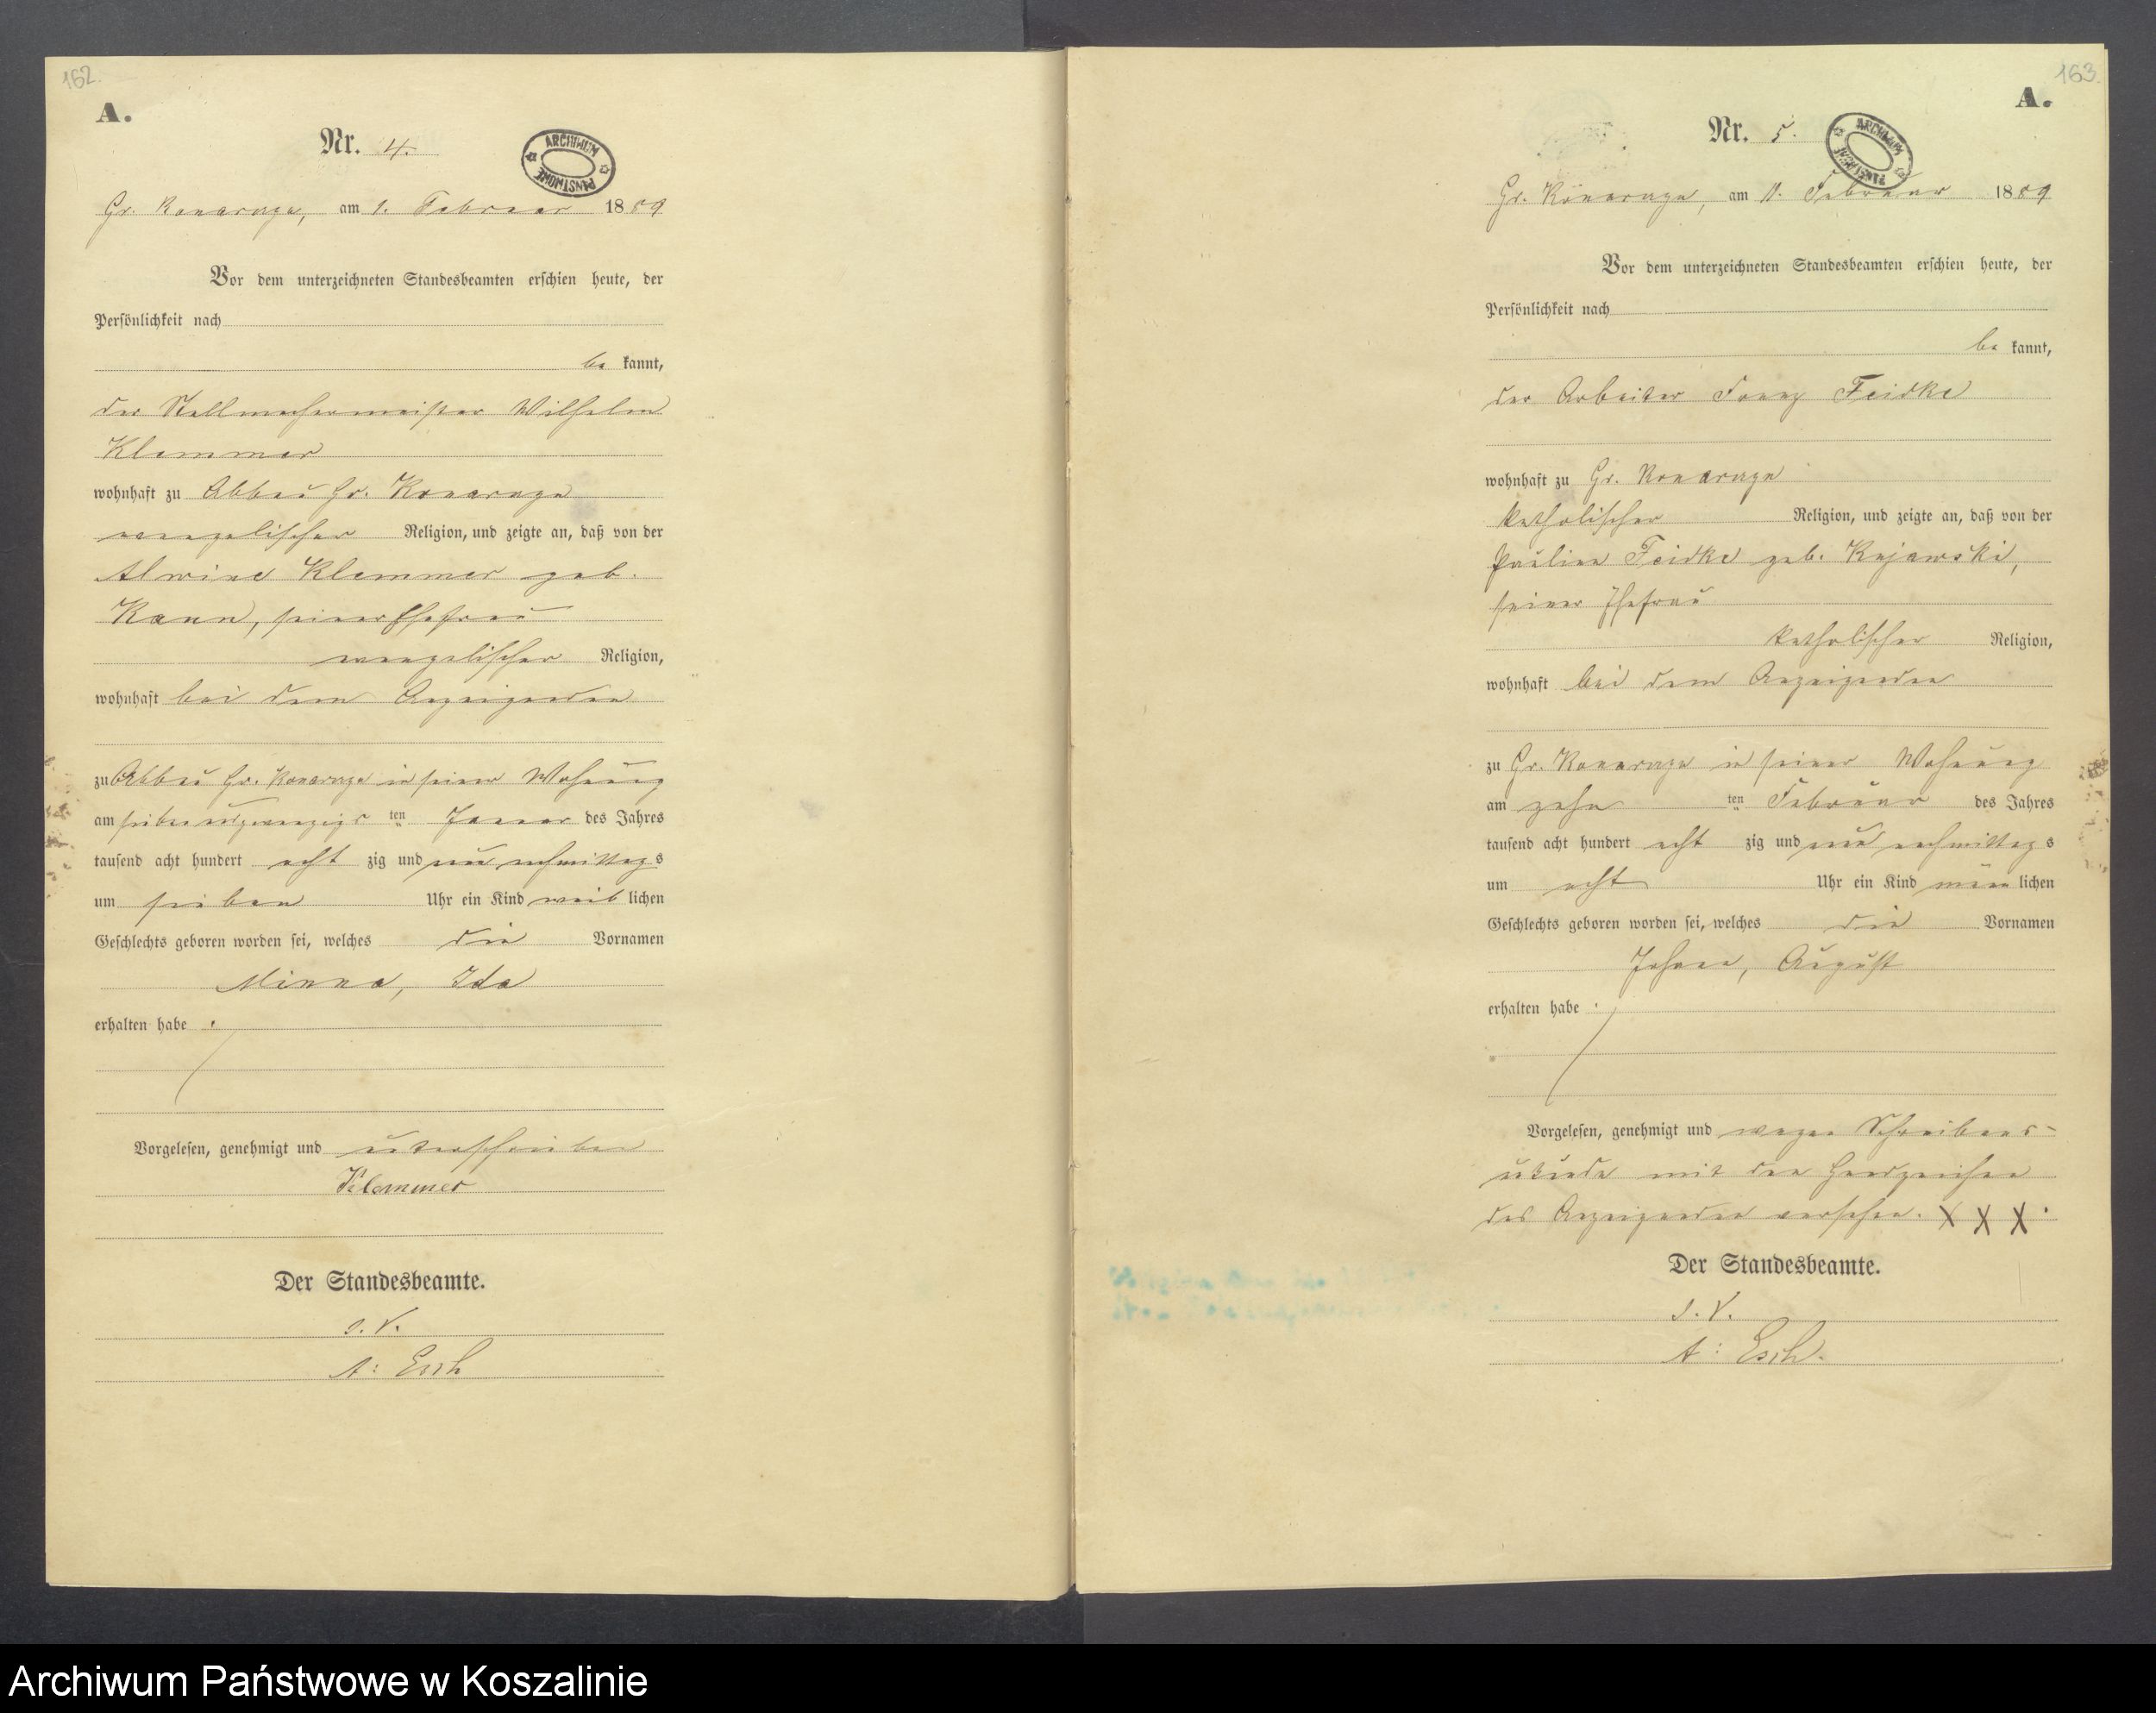 162.
A.
Nr. 4.
ARCHIWUM PAŃSTWOWE
Gr. Konarzyn, am 1. Februar 1889
Vor dem unterzeichneten Standesbeamten erschien heute, der
Persönlichkeit nach
be kannt,
der Stellmachermeister Wilhelm
Klemmer
wohnhaft zu Abbau Gr. Konarzyn
evangelischer Religion, und zeigte an, daß von der
Alwine Klemmer geb.
Kann, seiner Ehefrau
evangelischer Religion,
wohnhaft bei dem Anzeigenden
zu Abbau Gr. Konarzyn in seiner Wohnung
am sieben und zwanzigs ten Januar des Jahres
tausend acht hundert acht zig und neun nachmittags
um sieben Uhr ein Kind weib lichen
Geschlechts geboren worden sei, welches die Vornamen
Minna, Ida
erhalten habe.
Vorgelesen, genehmigt und unterschrieben
Klemmer
Der Standesbeamte.
I. V.
A: Esch
163.
A.
Nr. 5.
ARCHIWUM PAŃSTWOWE
Gr. Konarzyn, am 11. Februar 1889
Vor dem unterzeichneten Standesbeamten erschien heute, der
Persönlichkeit nach
be kannt,
der Arbeiter Franz Feidke
wohnhaft zu Gr. Konarzyn
katholischer Religion, und zeigte an, daß von der
Pauline Feidke geb. Kujawski,
seiner Ehefrau
katholischer Religion,
wohnhaft bei dem Anzeigenden
zu Gr. Konarzyn in seiner Wohnung
am zehn ten Februar des Jahres
tausend acht hundert acht zig und neun nachmittag s
um acht Uhr ein Kind männ lichen
Geschlechts geboren worden sei, welches die Vornamen
Johann, August
erhalten habe.
Vorgelesen, genehmigt und wegen Schreibens-
unkunde mit den Handzeichen
des Anzeigenden versehen. X X X.
Der Standesbeamte.
I. V.
A: Esch.
Archiwum Państwowe w Koszalinie